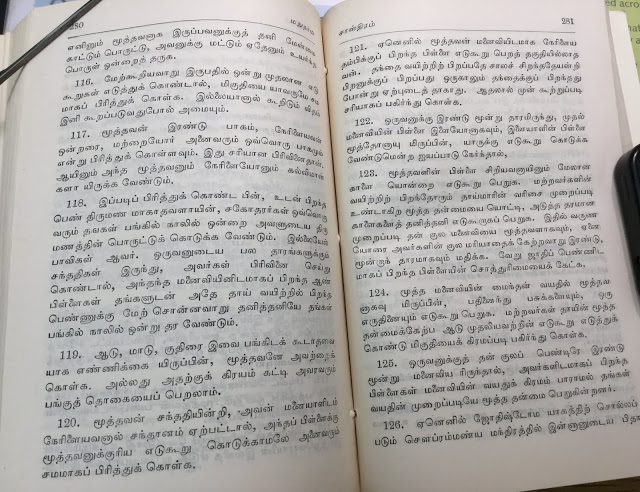 280 மநுதரும
எனினும் மூத்தவனாக இருப்பவனுக்குத் தனி மேன்மை
காட்டும் பொருட்டு, அவனுக்கு மட்டும் ஏதேனும் உயர்ந்த
பொருள் ஒன்றைத் தருக.
116. மேற்கூறியவாறு இருபதில் ஒன்று முதலான ஏழு
கூறுகள் எடுத்துக் கொண்டால், மிகுதியை யாவரும் சம
மாகப் பிரித்துக் கொள்க. இல்லையானால் கூறிடும் விதம்
இனி கூறப்படுவதுபோல் அமையும்.
117. மூத்தவன் இரண்டு பாகம், நேரிளையவன்
ஒன்றரை, மற்றையோர் அனைவரும் ஒவ்வொரு பாகமுமாக
என்று பிரித்துக் கொள்ளவும். இது சரியான பிரிவினைதான்.
ஆயினும் அந்த மூத்தவனும் நேரிளையோனும் கல்விமான்
களா யிருக்க வேண்டும்.
118. இப்படிப் பிரித்துக் கொண்ட பின், உடன் பிறந்த
பெண் திருமண மாகாதவளாயின், சகோதரர்கள் ஒவ்வொரு
வரும் தவகள் பங்கில் காலில் ஒன்றை அவளுடைய திரு
மணத்தின் பொருட்டுக் கொடுக்க வேண்டும். இல்லையேல்
பாவிகள் ஆவர். ஒருவனுடைய பல தாரங்களுக்கும்
சந்ததிகள் இருந்து, அவர்கள் பிரிவினை செய்து
கொண்டால், அந்தந்த மனைவியினிடமாகப் பிறந்த ஆண்
பிள்ளைகள் தங்களுடன் அதே தாய் வயிற்றில் பிறந்த
பெண்ணுக்கு மேற் சொன்னவாறு தனித்தனியே தங்கள்
பங்கில் நாலில் ஒன்று தர வேண்டும்.
119. ஆடு, மாடு, குதிரை இவை பங்கிடக் கூடாதவை
யாக எண்ணிக்கை யிருப்பின், மூத்தவனே அவற்றைக்
கொள்க. அல்லது அதற்குக் கிரயம் கட்டி அவரவரும்
பங்குத் தொகையைப் பெறலாம்.
120. மூத்தவன் சந்ததியின்றி, அவன் மனையாளிடம்
நேரிளையவனால் சந்தானம் ஏற்பட்டால், அந்தப் பிள்ளைக்கு
மூத்தவனுக்குரிய எடுகூறு கொடுக்காமலே அனைவரும்
சமமாகப் பிரித்துக் கொள்க.
சாஸ்திரம் 281
121. ஏனெனில் மூத்தவன் மனைவியிடமாக நேரிளைய
தம்பிக்குப் பிறந்த பிள்ளை எடுகூறு பெறத் தகுதியில்லாத
வன். தந்தை வயிற்றிற் பிறப்பதே சாலச் சிறந்ததேயன்றி
பிறனுக்குப் பிறப்பது ஒருகாலும் தந்தைக்குப் பிறந்தது
போன்று ஏற்புடைத் தாகாது. ஆதலால் முன் கூற்றுப்படி
சரியாகப் பகிர்ந்து கொள்க.
122. ஒருவனுக்கு இரண்டு மூன்று தாரமிருந்து, முதல்
மனைவியின் பிள்ளை இளையோனாகவும், இளையாளின் பிள்ளை
மூத்தோனாயு மிருப்பின், யாருக்கு எடுகூறு கொடுக்க
வேண்டுமென்ற ஐயப்பாடு நேர்ந்தால்,
123. மூத்தவளின் பிள்ளை சிறியவனாயினும் மேலான
காளை யொன்றை எடுகூறு பெறுக. மற்றவர்களின்
வயிற்றிற் பிறந்தோரும் தாய்மாரின் வரிசை முறைப்படி
உண்டாகிற மூத்த தன்மையை யொட்டி, அடுத்த தரமான
காளைகளைத் தனித்தனி எடுகூறாகப் பெறுக. இதில் வருண
முறைப்படி தன் குல மனைவியை மூத்தவளாகவும், ஏனை
யோரை அவர்களின் குல மரியாதைக் கேற்றவாறு இரண்டு,
மூன்றாந் தாரமாகவும் மதிக்க. வேறு ஜாதிப் பெண்ணிட
மாகப் பிறந்த பிள்ளையின் சொத்துரிமையைக் கேட்க.
124. மூத்த மனைவியின் மைந்தன் வயதில் மூத்தவ
னாகவு மிருப்பின், பதினைந்து பசுக்களையும், ஒரு
எருதினையும் எடுகூறு பெறுக. மற்றவர்கள் தாயின் மூத்த
தன்மைக்கேற்ப ஆடு முதலியவற்றின் எடுகூறு எடுத்துக்
கொண்டு மிகுதியைக் கிரமப்படி பகிர்ந்து கொள்க.
125. ஒருவனுக்குத் தன் குலப் பெண்டிரே இரண்டு
மூன்று மனைவிய ரிருந்தால், அவர்களிடமாகப் பிறந்த
பிள்ளைகள் மனைவியின் வயதுக் கிரமம் பாராமல் தங்கள்
வயதின் முறைப்படியே மூத்த தன்மை பெறுகின்றனர்.
126. ஏனெனில் ஜோதிஷ்டோம யாகத்திற் சொல்லப்
படும் சௌப்ரம்மண்ய மந்திரத்தில் இன்னானுடைய பிதா